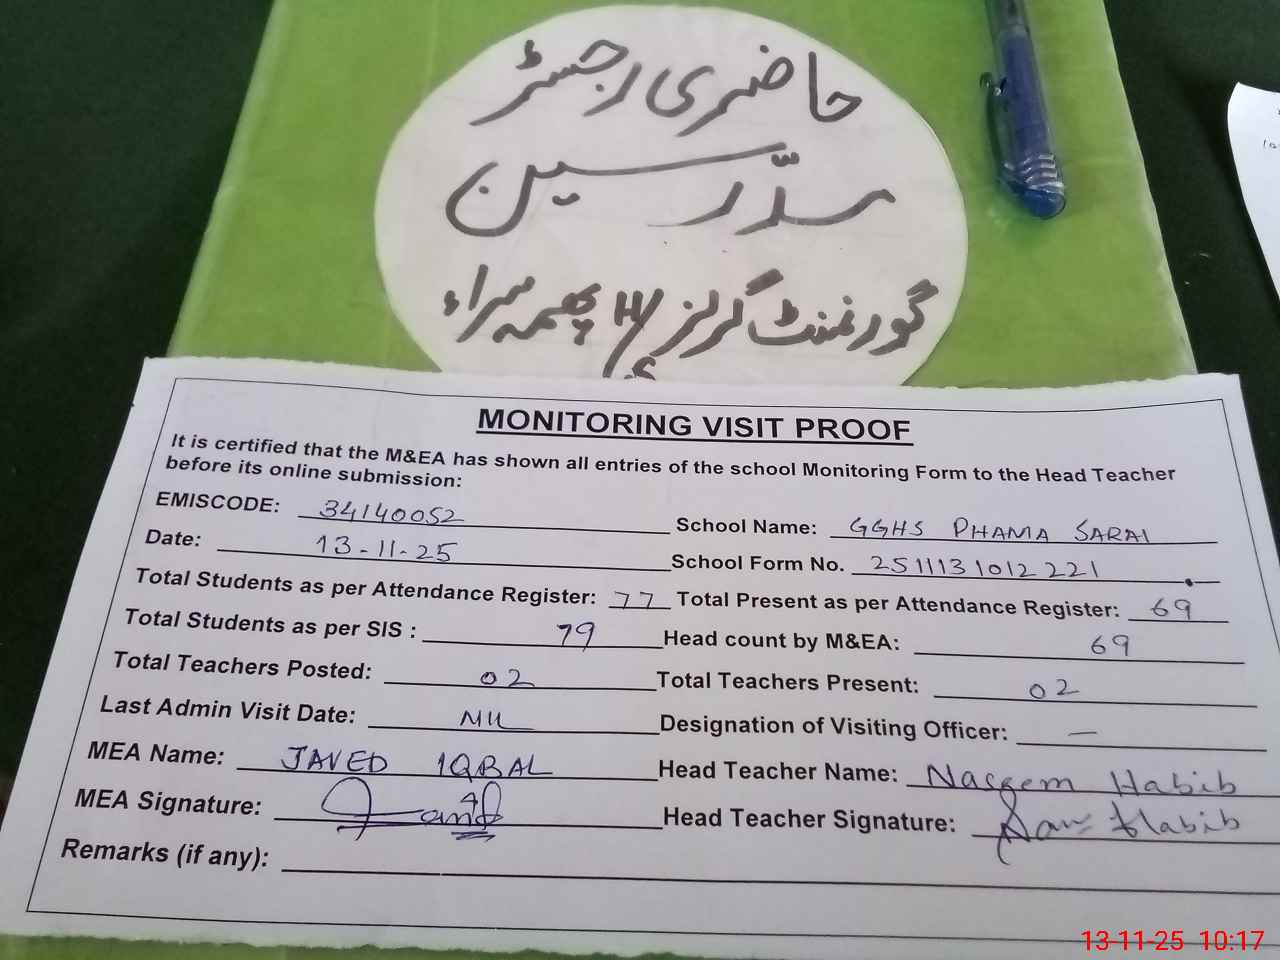 حاضری رجسٹر
مدّرسین
گورنمنٹ گرلز H/S پھمہ سراء
MONITORING VISIT PROOF
It is certified that the M&EA has shown all entries of the school Monitoring Form to the Head Teacher
before its online submission:
EMISCODE: 34140052 School Name: GGHS PHAMA SARAI
Date: 13-11-25 School Form No. 2511131012221
Total Students as per Attendance Register: 77 Total Present as per Attendance Register: 69
Total Students as per SIS : 79 Head count by M&EA: 69
Total Teachers Posted: 02 Total Teachers Present: 02
Last Admin Visit Date: NIL Designation of Visiting Officer: —
MEA Name: JAVED IQBAL Head Teacher Name: Naseem Habib
MEA Signature: Head Teacher Signature: Habib
Remarks (if any):
13-11-25 10:17